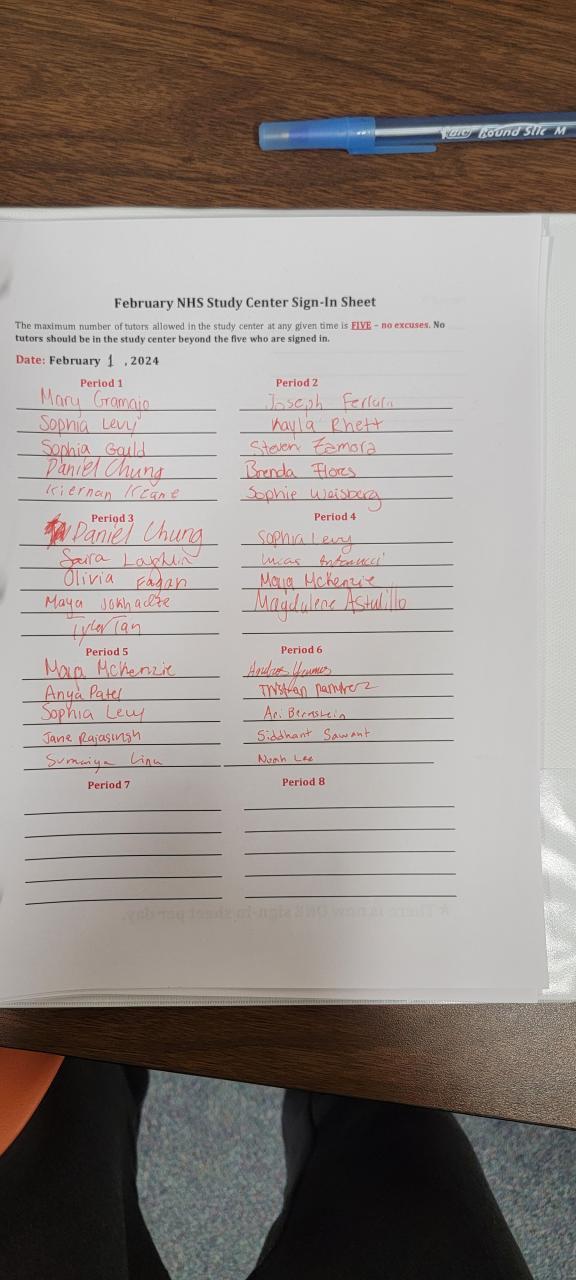 BIC Round Stic M
February NHS Study Center Sign-In Sheet
The maximum number of tutors allowed in the study center at any given time is FIVE - no excuses. No
tutors should be in the study center beyond the five who are signed in.
Date: February 1, 2024
Period 1
Mary Gramajo
Sophia Levy
Sophia Gould
Daniel Chung
Kiernan Keane
Period 2
Joseph
Kayla Rhett
Steven Zamora
Brenda Flores
Sophie Weisberg
Period 3
Daniel Chung
Saira Laughlin
Olivia Fagan
Maya Jokhadze
Tyler Tan
Period 4
Sophia Levy
Lucas Antonucci
Maya McKenzie
Magdalene Astudillo
Period 5
Maya McKenzie
Anya Patel
Sophia Levy
Jane Rajasingh
Sumaiya
Period 6
Tristan Ramirez
Ari Bernstein
Siddhant Sawant
Noah Lee
Period 7
Period 8
There is now ONE sign-in sheet per day.